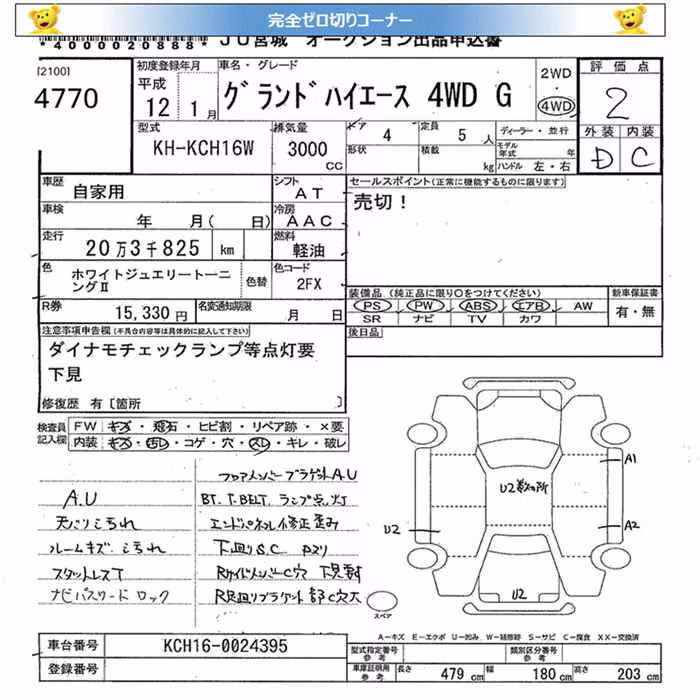 完全ゼロ切りコーナー
*4000020888* JU宮城 オークション出品申込書
[2100]
4770
初度登録年月
平成
12 1月
車名・グレード
グランドハイエース 4WD G
2WD
・
4WD
評価点
2
外装 内装
D C
型式
KH-KCH16W
排気量
3000
CC
ドア 4
定員 5 人
形状
積載 kg
ディーラー・並行
モデル年式 年
ハンドル 左・右
車歴
自家用
シフト
AT
車検
年 月( 日)
冷房
AAC
走行
20万3千825 km
燃料
軽油
色
ホワイトジュエリートーニングⅡ
色替
色コード
2FX
R券
15,330円
名変通知期限
月 日
セールスポイント(正常に機能するものに限ります)
売切!
装備品(純正品に限り〇をつけてください)
PS PW ABS エアB AW
SR ナビ TV カワ
新車保証書
有・無
後日品
注意事項申告欄(不具合内容等は具体的に記入して下さい)
ダイナモチェックランプ等点灯要
下見
修復歴 有〔箇所 〕
検査員
記入欄
FW キズ・飛石・ヒビ割・リペア跡・×要
内装 キズ・汚レ・コゲ・穴・スレ・キレ・破レ
フロアメンバーブラケットA.U
A.U
BT. T-BELT. ランプ点灯
天バリこちれ
エンドパネル修正歪み
ルームキズ こちれ
下廻りS.C
スタットレスT
RサイドメンバーC穴
ナビパスワード ロック
スペア
U2数ヶ所
A1
A2
U2
U2
A-キズ E-エクボ U-凹み W-補修跡 S-サビ C-腐食 XX-交換済
車台番号
KCH16-0024395
登録番号
型式指定番号
参考
類別区分番号
参考
車庫証明用
参考
長さ 479 cm
幅 180 cm
高さ 203 cm